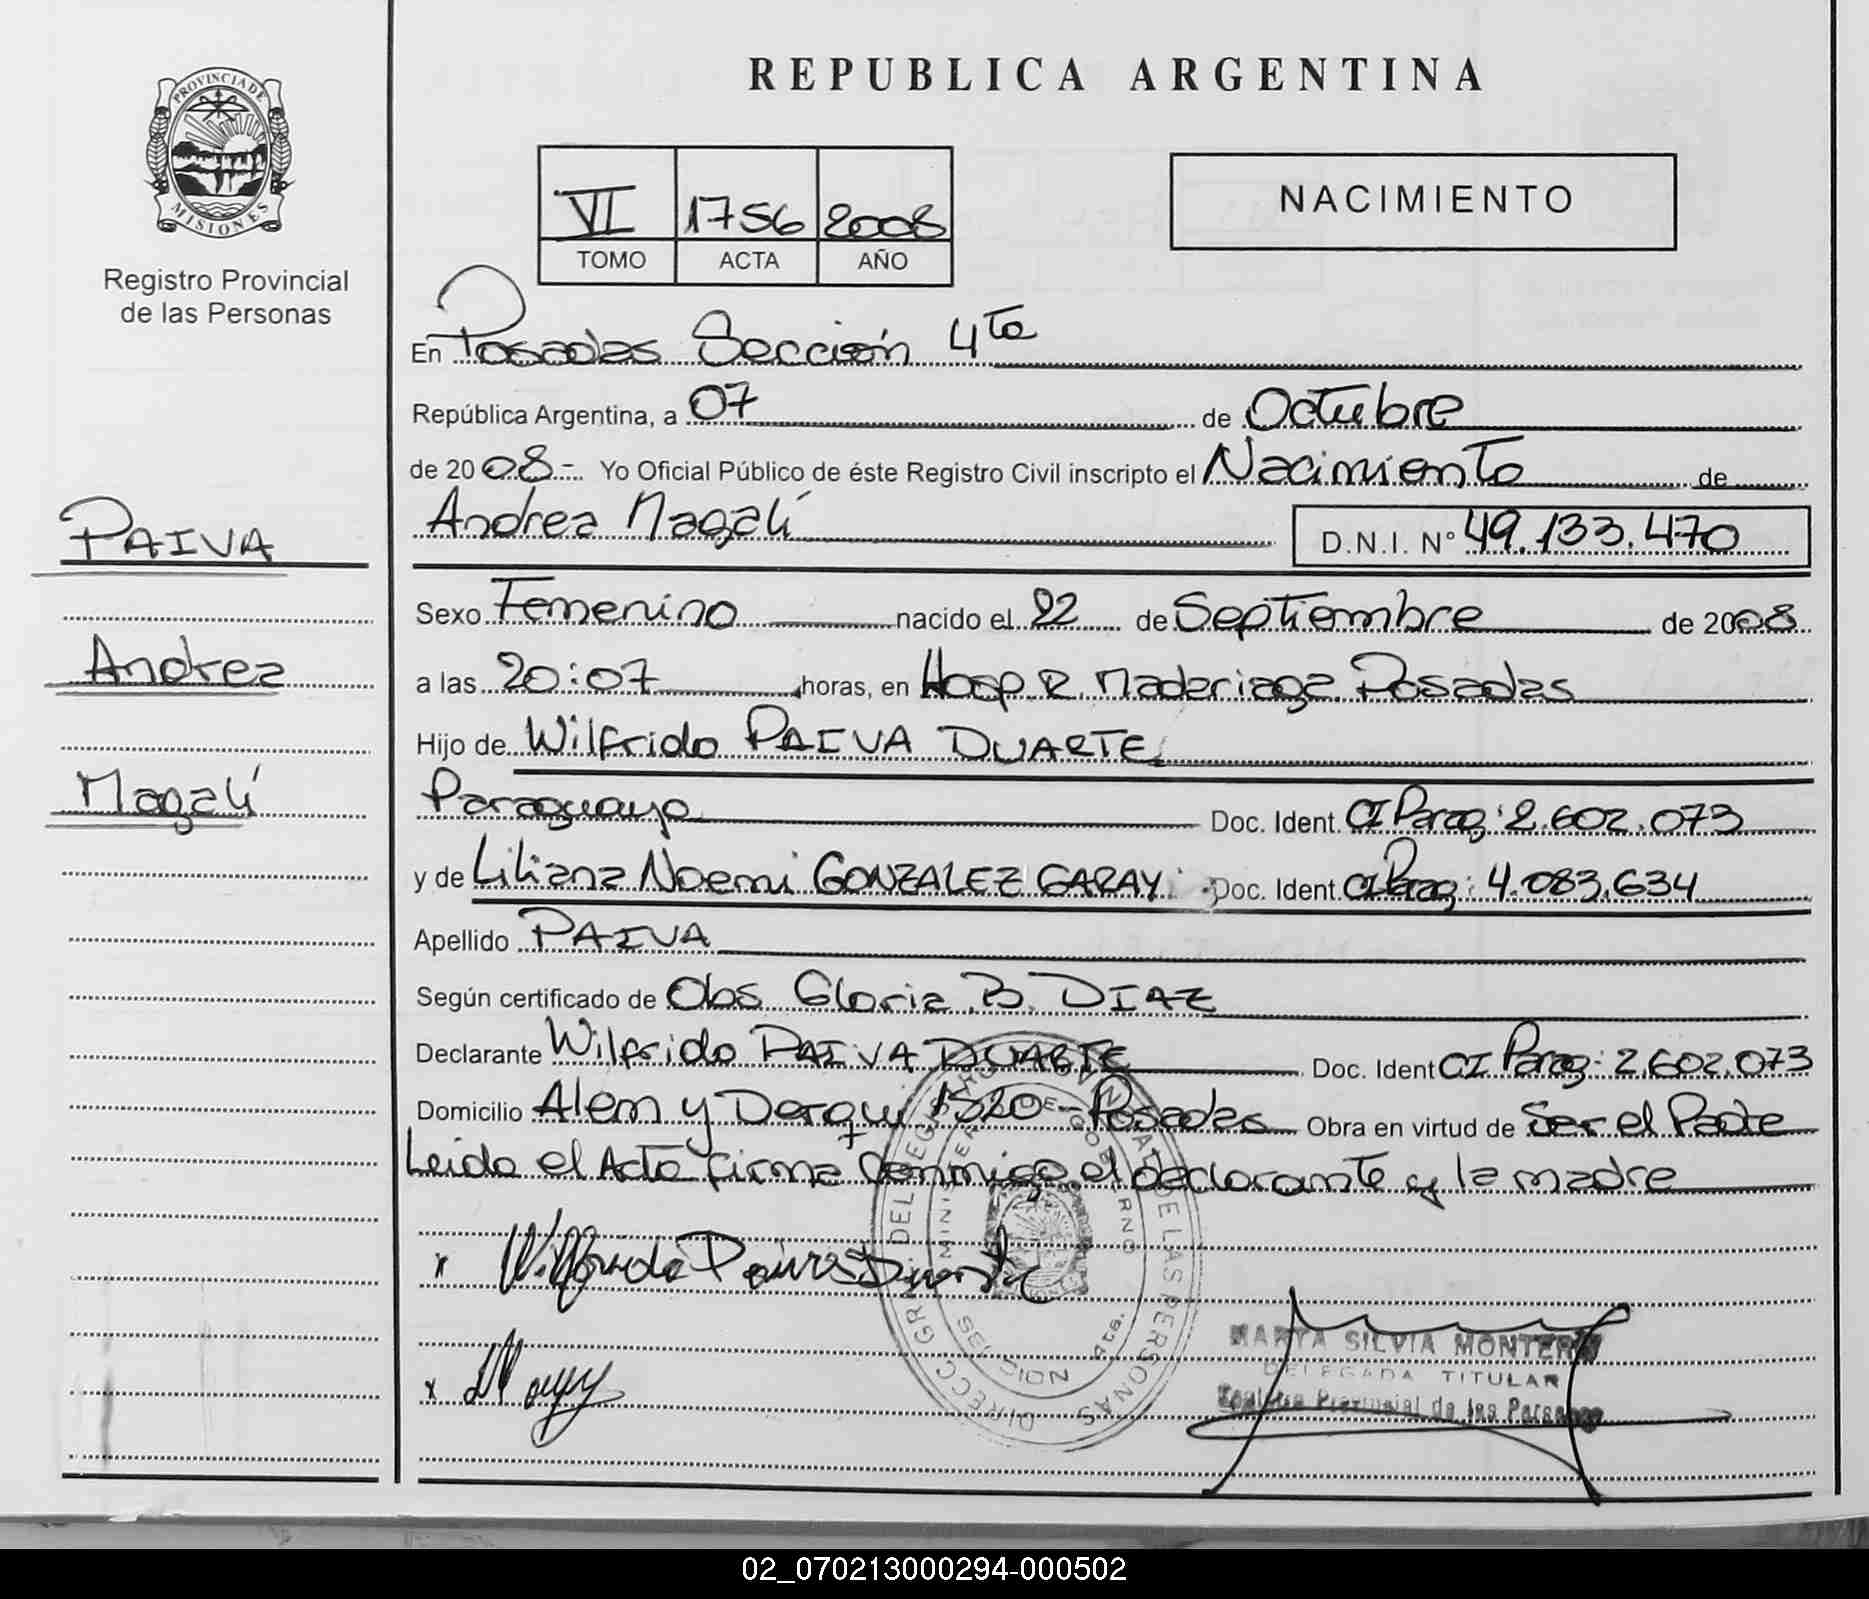 PROVINCIA DE
MISIONES
Registro Provincial
de las Personas
PAIVA
Andrea
Magalí
REPUBLICA ARGENTINA
VI 1756 2008
TOMO ACTA AÑO
NACIMIENTO
En Posadas Sección 4ta
República Argentina, a 07 de Octubre
de 2008- Yo Oficial Público de éste Registro Civil inscripto el Nacimiento de
Andrea Magalí D.N.I. N° 49.133.470
Sexo Femenino nacido el 22 de Septiembre de 2008
a las 20:07 horas, en Hosp R. Madariaga. Posadas
Hijo de Wilfrido PAIVA DUARTE
Paraguayo Doc. Ident. CI Parag: 2.602.073
y de Liliana Noemi GONZALEZ GARAY Doc. Ident. CI Parag: 4.083.634
Apellido PAIVA
Según certificado de Obs Gloria B. DIAZ
Declarante Wilfrido PAIVA DUARTE Doc. Ident CI Parag: 2.602.073
Domicilio Alem y Derqui 1520 - Posadas Obra en virtud de Ser el Padre
Leida el Acta firma Conmigo el declarante y la madre
x Wilfrido Paiva Duarte
x
DIRECC. GRAL. DEL REGISTRO PROVINCIAL DE LAS PERSONAS
MINISTERIO DE GOBIERNO
MARTA SILVIA MONTERO
DELEGADA TITULAR
Registro Provincial de las Personas
02_070213000294-000502